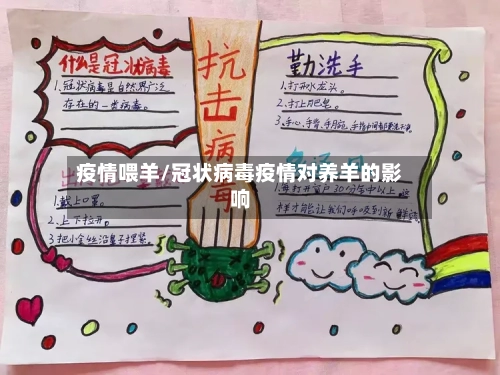 什么是冠状病毒
1.冠状病毒是自然界广泛
存在的一类病毒。
1.戴上口罩。
2.上下拉开。
3.把小金丝沿鼻子捏紧。
抗击病毒
勤洗手
1.打开水龙头。
2.打上肥皂。
3.手心、手背、手月宛、手指中间都要洗干净。
1.每打开窗户30分钟以上
样才能让我们呼吸到新鲜
疫情喂羊/冠状病毒疫情对养羊的影
响